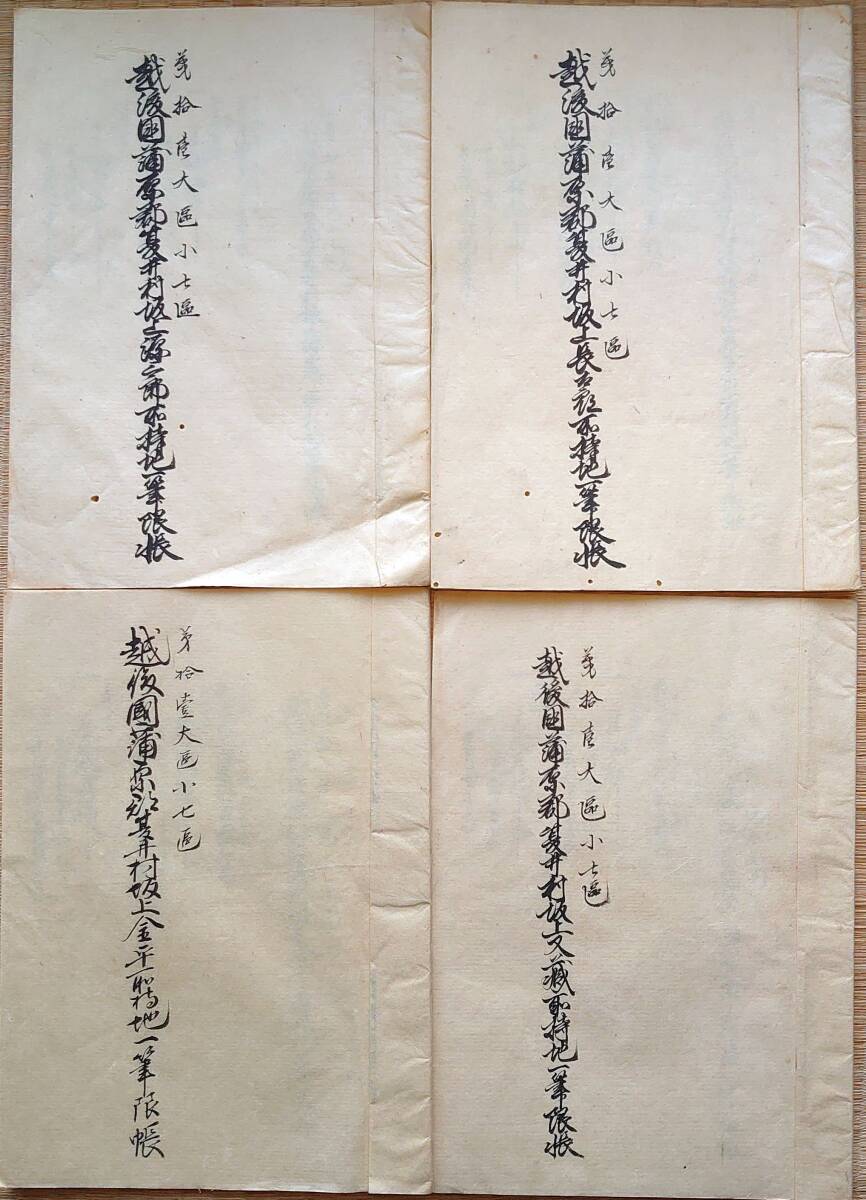 第拾壹大區小七區
越後國蒲原郡夏井村坂上長太郎所持地一筆限帳
第拾壹大區小七區
越後國蒲原郡夏井村坂上 所持地一筆限帳
第拾壹大區小七區
越後國蒲原郡夏井村坂上又藏所持地一筆限帳
第拾壹大區小七區
越後國蒲原郡夏井村坂上金平所持地一筆限帳